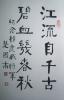 江流自千古
碧血幾春秋